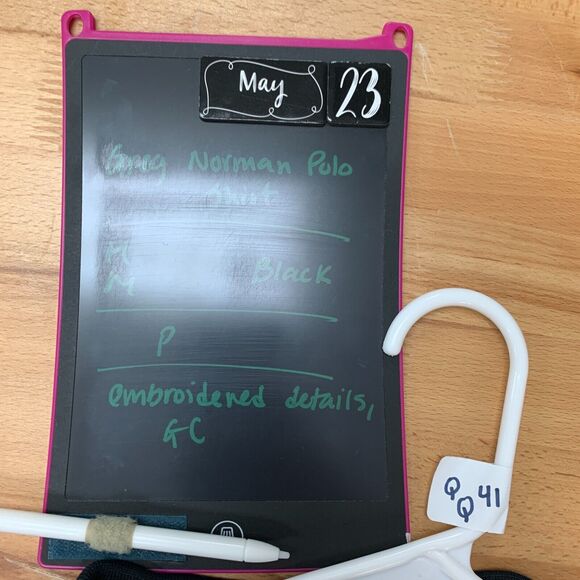 May 23
Greg Norman Polo
Shirt
M
M Black
P
embroidered details,
GC
QQ 41